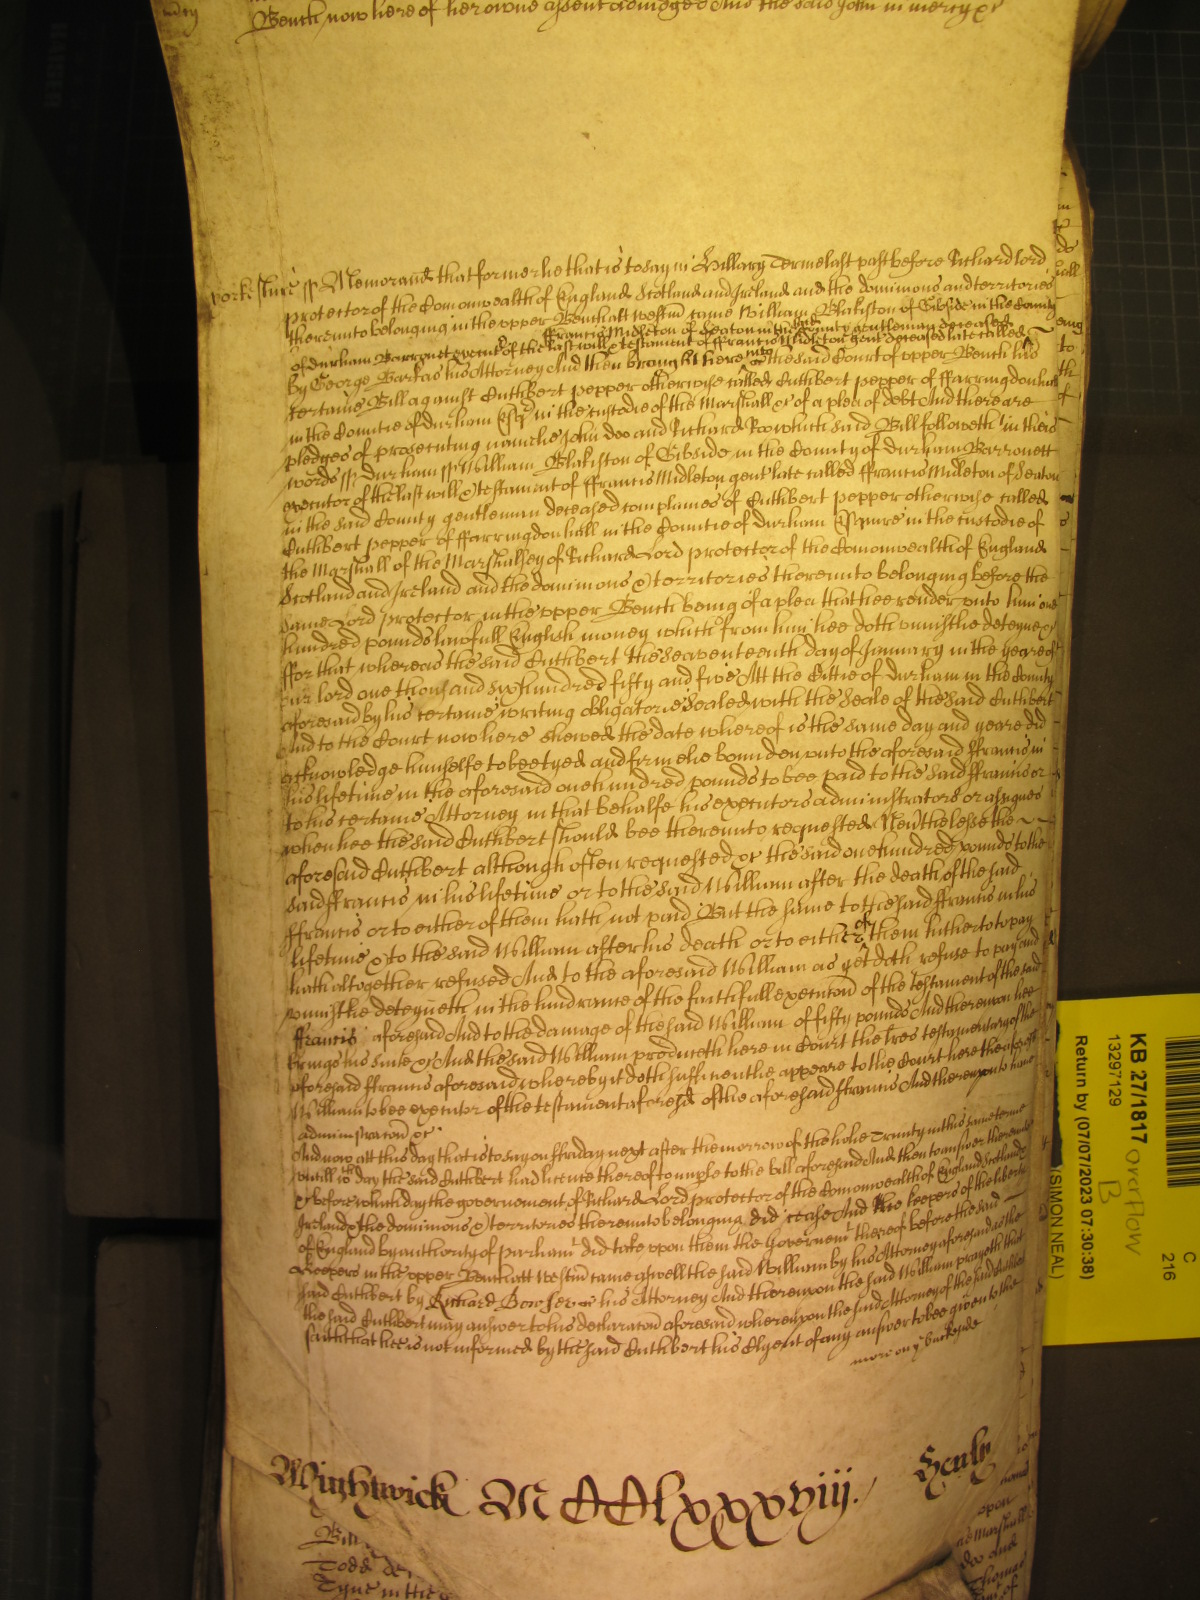 Bench now here of her owne assent adiudged And the said John in mercy &c
Yorkshire ss Memorand that formerlie that is to say in Hillary Terme last past before Richard lord
protector of the Comonwealth of England Scotland and Ireland and the dominions and territories
thereunto belonging in the upper Bench att Westm came William Blakiston of Gibside in the County
ffrancis Midleton of Seaton in the said County gentleman deceased
of durham Barronet executor of the last will & testament of ffrancis Midleton gent deceased late called
by George Barkas his Attorney And then brought here into the said Court of upper Bench his
certaine Bill against Cuthbert pepper otherwise called Cuthbert pepper of ffarringdon hall
in the Countie of durham Esqr in the custodie of the Marshall &c of a plea of debt And there are
pledges of prosecuting namelie John doo and Richard Roo which said Bill followeth in theis
words ss durham ss William Blakiston of Gibside in the County of durham Barronett
executor of the last will & testament of ffrancis Midleton gent late called ffrancis Midleton of Seaton
in the said County gentleman deceased complaines of Cuthbert pepper otherwise called
Cuthbert pepper of ffarringdon hall in the Countie of durham Esquire in the custodie of
the Marshall of the Marshalsey of Richard Lord protector of the Comonwealth of England
Scotland and Ireland and the dominions & territories thereunto belonging before the
same Lord protector in the upper Bench being of a plea that hee render unto him one
hundred pounds lawfull English money which from him hee doth uniustlie deteyne &c
ffor that whereas the said Cuthbert the seaventeenth day of January in the yeare of
our lord one thousand six hundred fifty and five Att the Cittie of durham in the County
aforesaid by his certaine writing obligatorie sealed with the Seale of the said Cuthbert
And to the Court now here shewed the date whereof is the same day and yeare did
acknowledge himselfe to bee tyed and firmelie bounden unto the aforesaid ffrancis in
his lifetime in the aforesaid one hundred pounds to bee paid to the said ffrancis or
to his certaine Attorney in that behalfe his executors administrators or assignes
when hee the said Cuthbert should bee thereunto requested Nevthelesse the
aforesaid Cuthbert although often requested &c the said one hundred pounds to the
said ffrancis in his lifetime or to the said William after the death of the said
ffrancis or to either of them hath not paid But the same to the said ffrancis in his
lifetime & to the said William after his death or to either of them hitherto to pay
hath altogether refused And to the aforesaid William as yet doth refuse to pay and
uniustlie deteyneth in the hindrance of the faithfull execucon of the testament of the said
ffrancis aforesaid And to the damage of the said William of fifty pounds And thereupon hee
brings his suite &c And the said William produceth here in Court the lres testamentary of the
aforesaid ffrancis aforesaid whereby it doth sufficientlie appeare to the Court here the aforesaid
William to bee executor of the testament aforesd of the aforesaid ffrancis And thereupon to have
administracon &c
And now att this day that is to say on ffriday next after the morrow of the holie Trinity in this same terme
untill wch day the said Cuthbert had licence thereof to imple to the bill aforesaid And then to answer thereunto
& before which day the governement of Richard Lord protector of the Comonwealth of England Scotland &
Ireland & the dominions & territories thereunto belonging did cease And the keepers of the liberty
of England by authority of parliamt did take upon them the Governemt thereof before the said
Keepers in the upper Bench att Westm came aswell the said William by his Attorney aforesaid as the
said Cuthbert by Richard Bowser his Attorney And thereupon the said William prayeth that
the said Cuthbert may answer to his declaracon aforesaid whereupon the said Attorney of the said Cuthbert
saith that hee is not informed by the said Cuthbert his Clyent of any answer to bee given to the
more on ye backside
Wightwick MCClxxxviij. Sculp
Todd
Tyne in the
upon
Marshall
doo and
Thomas
KB 27/1817 overflow
B
13297129
Return by (07/07/2023 07:30:38)
(SIMON NEAL)
C
216